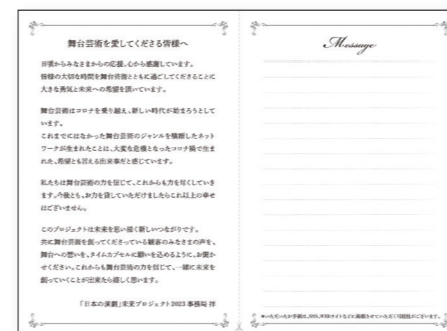 舞台芸術を愛してくださる皆様へ
日頃からみなさまからの応援、心から感謝しています。
皆様の大切な時間を舞台芸術とともに過ごしてくださることに
大きな勇気と未来への希望を頂いています。
舞台芸術はコロナを乗り越え、新しい時代が始まろうとして
います。
これまでにはなかった舞台芸術のジャンルを横断したネット
ワークが生まれたことは、大変な危機となったコロナ禍で生ま
れた、希望とも言える出来事だと感じています。
私たちは舞台芸術の力を信じて、これからも力を尽くしていき
ます。今後とも、お力を貸していただけましたらこれ以上の幸せ
はございません。
このプロジェクトは未来を思い描く新しいつながりです。
共に舞台芸術を創ってくださっている観客のみなさまの声を、
舞台への想いを、タイムカプセルに願いを込めるように、お聞か
せください。これからも舞台芸術の力を信じて、一緒に未来を
創っていくことが出来たら嬉しく思います。
「日本の演劇」未来プロジェクト2023 事務局 拝
Message
※いただいたお手紙は、SNS、WEBサイトなどに掲載させていただく可能性がございます。